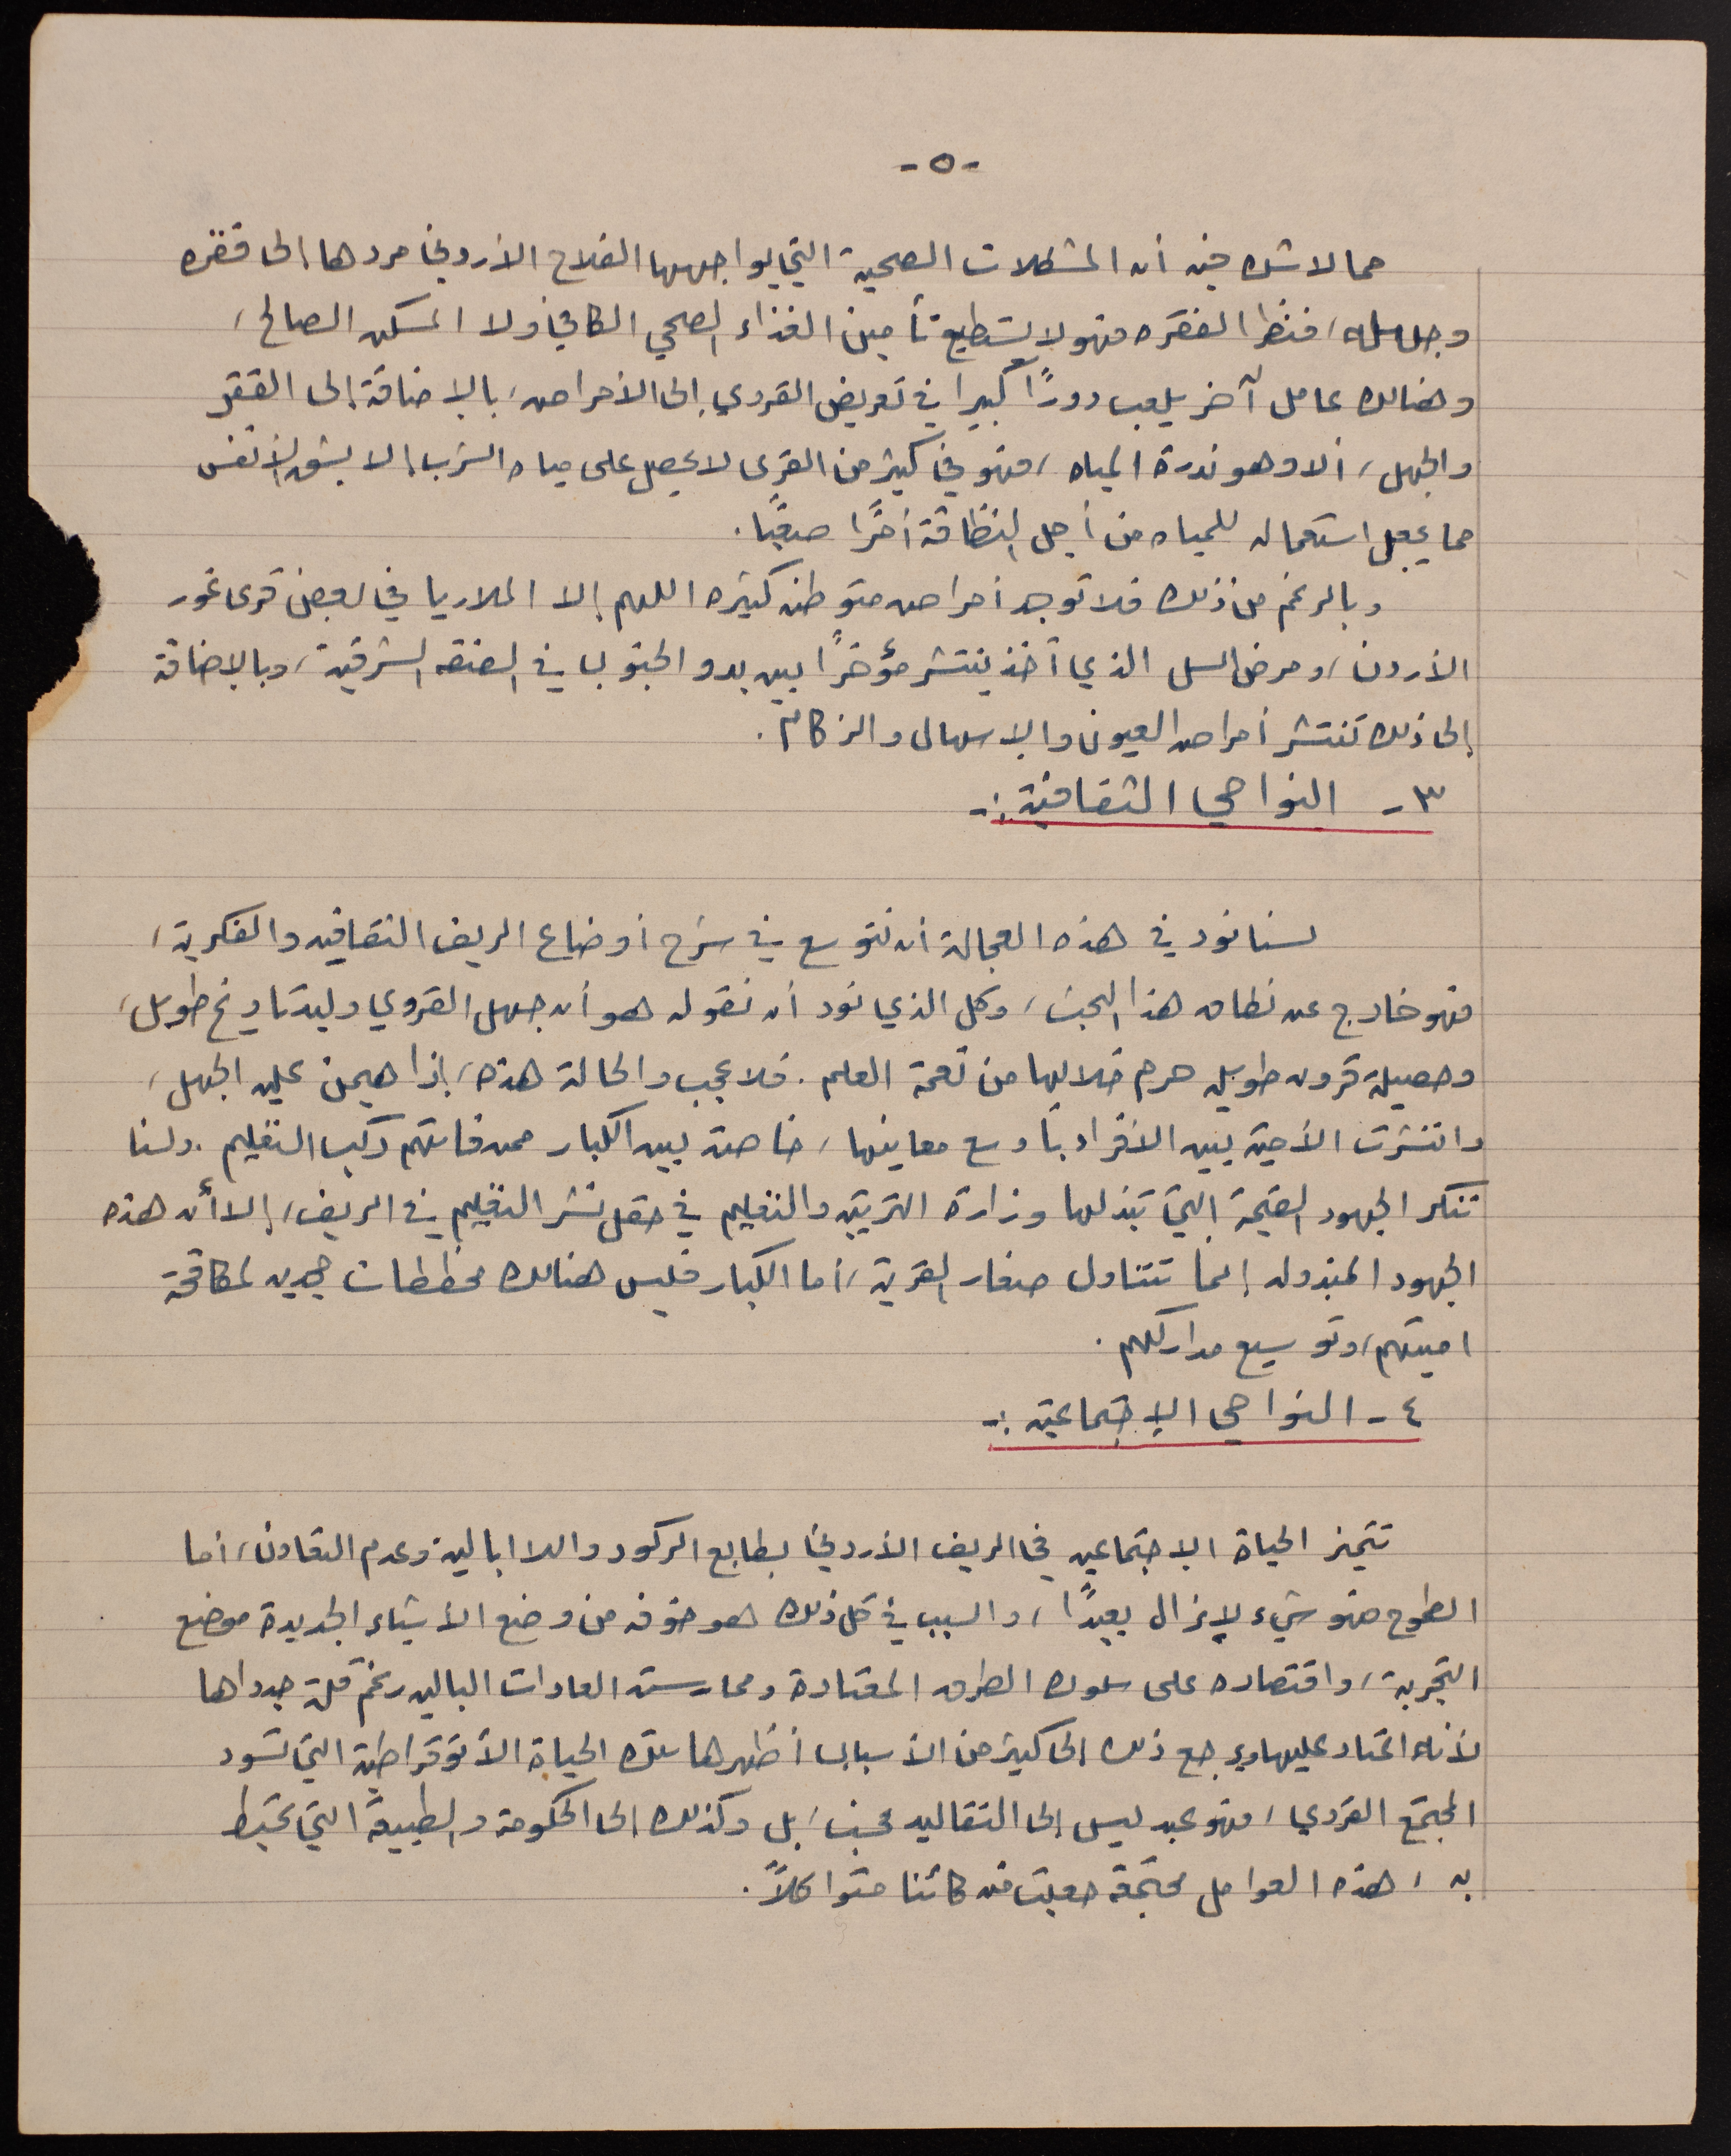 -٥-
مما لاشك فيه أن المشكلات الصحية التي يواجهها الفلاح الأردني مردها إلى فقره
وجهله، فنظرا لفقره فهو لا يستطيع تأمين الغذاء الصحي الكافي ولا المسكن الصالح،
وهنالك عامل آخر يلعب دورًا كبيرا في تعريض القروي إلى الأمراض، بالإضافة إلى الفقر
والجهل، ألا وهو ندرة المياه، فهو في كثير من القرى لا يحصل على مياه الشرب إلا بشق الأنفس
مما يجعل استعماله للمياه من أجل النظافة أمرًا صعبًا.
وبالرغم من ذلك فلا توجد أمراض متوطنه كثيره اللهم إلا الملاريا في بعض قرى غور
الأردن، ومرض السل الذي أخذ ينتشر مؤخرًا بين بدو الجنوب في الضفه الشرقية، وبالإضافة
إلى ذلك تنتشر أمراض العيون والإسهال والزكام.
٣- النواحي الثقافية :-
لسنا نود في هذه العجالة أن نتوسع في شرح أوضاع الريف الثقافيه والفكرية،
فهو خارج عن نطاق هذا البحث، وكل الذي نود أن نقوله هو أن جهل القروي وليد تاريخ طويل،
وحصيلة قرون طويله حرم خلالها من نعمة العلم. فلا عجب والحالة هذه، إذا هيمن عليه الجهل،
وانتشرت الأمية بين الأفراد بأوسع معاينها، خاصة بين الكبار ممن فاتهم ركب التعليم. ولسنا
ننكر الجهود القيمة التي تبذلها وزارة التربية والتعليم في حقل نشر التعليم في الريف، إلا أن هذه
الجهود المبذوله إنما تتناول صغار القرية، أما الكبار فليس هنالك مخططات مجديه لمكافحة
اميتهم، وتوسيع مداركهم.
٤- النواحي الإجتماعية :-
تتميز الحياة الإجتماعيه في الريف الأردني بطابع الركود واللاابالية وعدم التعاون، أما
الطموح فهو شيء لايزال بعيدًا، والسبب في كل ذلك هو خوفه من وضع الأشياء الجديدة موضع
التجربة، واقتصاره على سلوك الطرق المعتادة وممارسة العادات الباليه رغم قلة جدواها
لأنه اعتاد عليها ويرجع ذلك إلى كثير من الأسباب أظهرها تلك الحياة الأتوقراطية التي تسود
المجتمع القروي، فهو عبد ليس إلى التقاليد فحسب، بل وكذلك إلى الحكومة والطبيعة التي تحيط
به، هذه العوامل مجتمعة جعلت منه كائنا متواكلاً.